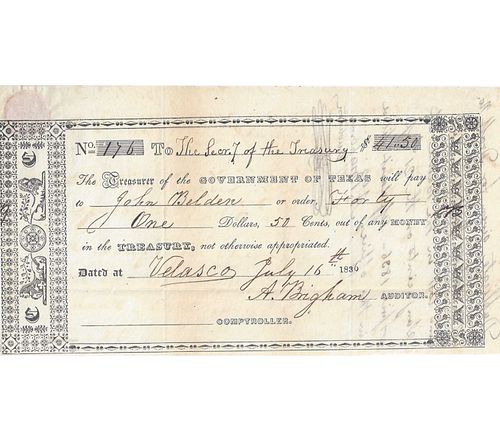 No. 176 To The Secry of the Treasury $ 41.50
The Treasurer of the GOVERNMENT OF TEXAS will pay
to John Belden or order, Forty
One Dollars, 50 Cents, out of any MONEY
in the TREASURY, not otherwise appropriated.
Dated at Velasco July 16th 1836
A. Brigham AUDITOR.
COMPTROLLER.